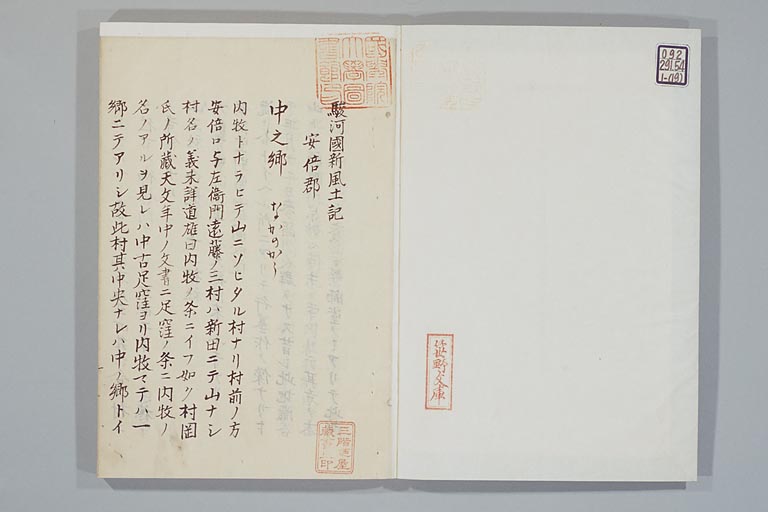 092
291.54
1-(19)
笹野文庫
駿河國新風土記
安倍郡
中之郷 なかのかう
内牧トナラヒテ山ニソヒタル村ナリ村前ノ方
安倍口与左衛門遠藤ノ三村ハ新田ニテ山ナシ
村名ノ義未詳道雄曰内牧ノ条ニイフ如ク村岡
氏ノ所蔵天文年中ノ文書ニ足窪ノ条ニ内牧ノ
名ノアルヲ見レハ中古足窪ヨリ内牧マテハ一
郷ニテアリシ故此村其中央ナレハ中ノ郷トイ